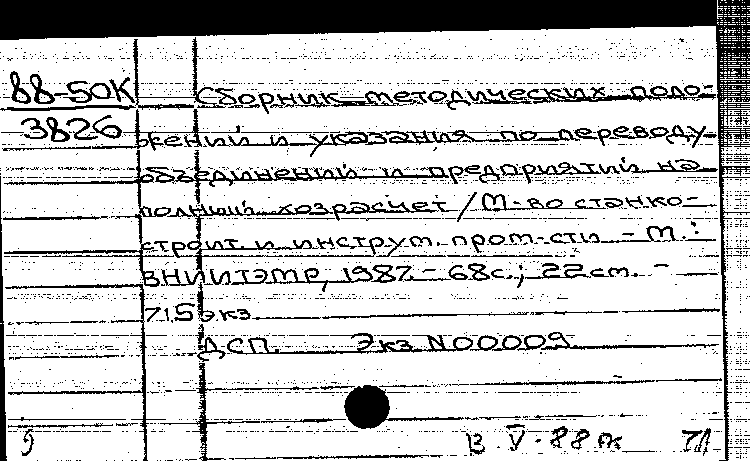 88-50К Сборник методических поло-
3826 жений и указания по переводу
объединений и предприятий на
полный хозрасчет / М-во станко-
строит. и инструм. пром-сти. - М.:
ВНИИТЭМР, 1987. - 68с.; 22см. -
715 экз.
ДСП. Экз N00009
9 13 V-88